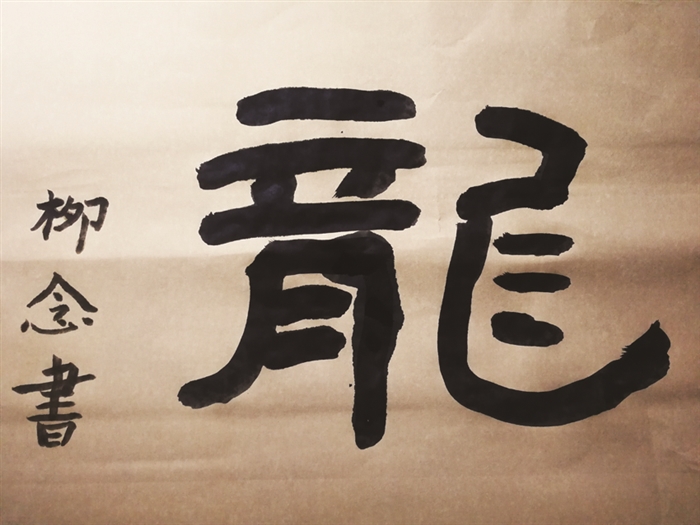 龍
柳念書